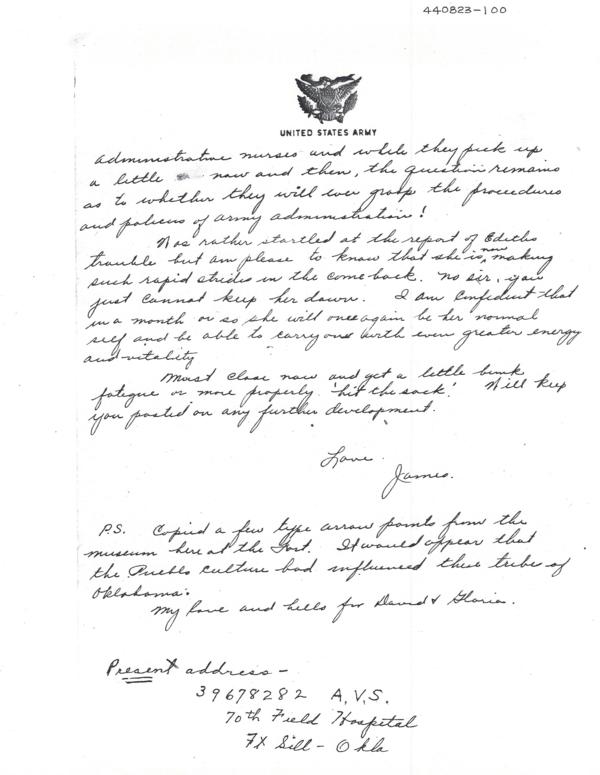 440823-100
UNITED STATES ARMY
administrative nurses and while they pick up
a little now and then, the question remains
as to whether they will ever grasp the procedures
and policies of army administration!
Was rather startled at the report of Ediths
trouble but am please to know that she is now making
such rapid strides in the come back. No sir, you
just cannot keep her down. I am confident that
in a month or so she will once again be her normal
self and be able to carry one with even greater energy
and vitality
Must close now and get a little bunk
fatigue or more properly 'hit the sack'. Will keep
you posted on any further development.
Love.
James.
P.S. Copied a few type arrow points from the
museum here at the Fort. It would appear that
the Pueblo culture had influenced these tribes of
Oklahoma.
My love and hello for David & Gloria.
Present address -
39678282 A.V.S.
70th Field Hospital
Ft Sill - Okla